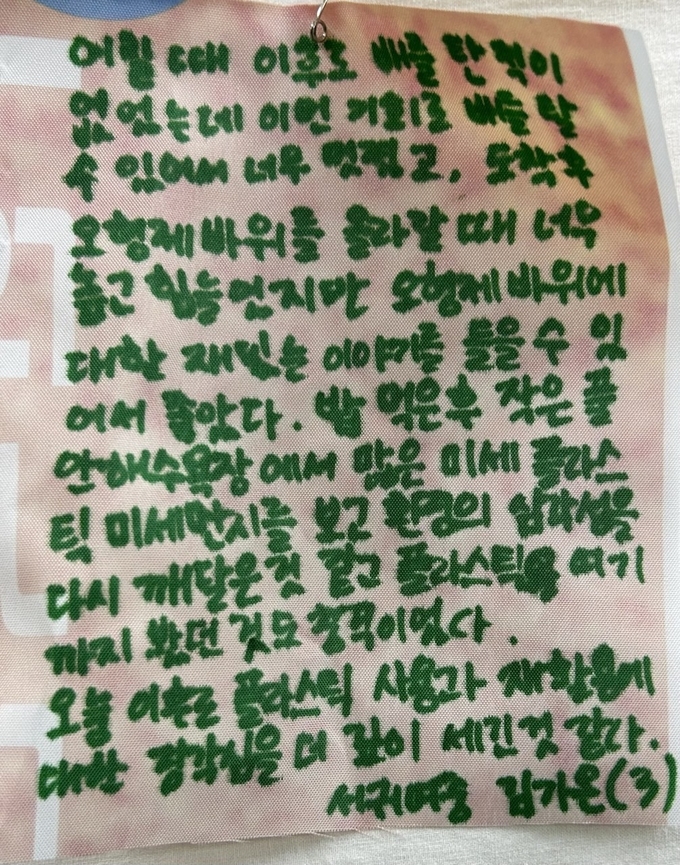 어릴 때 이후로 배를 탄 적이
없었는데 이번 기회로 배를 탈
수 있어서 너무 멋졌고, 도착후
오형제바위를 올라갈 때 너무
덥고 힘들었지만 오형제바위에
대한 재밌는 이야기를 들을수 있
어서 좋았다. 밥 먹은후 작은 풀
안해수욕장에서 많은 미세플라스
틱 미세먼지를 보고 환경의 심각성을
다시 깨달은것 같고 플라스틱을 여기
까지 왔던 것도 충격이었다.
오늘 이후로 플라스틱 사용과 재활용에
대한 경각심을 더 깊이 세긴것 같다.
서귀여중 김가온(3)